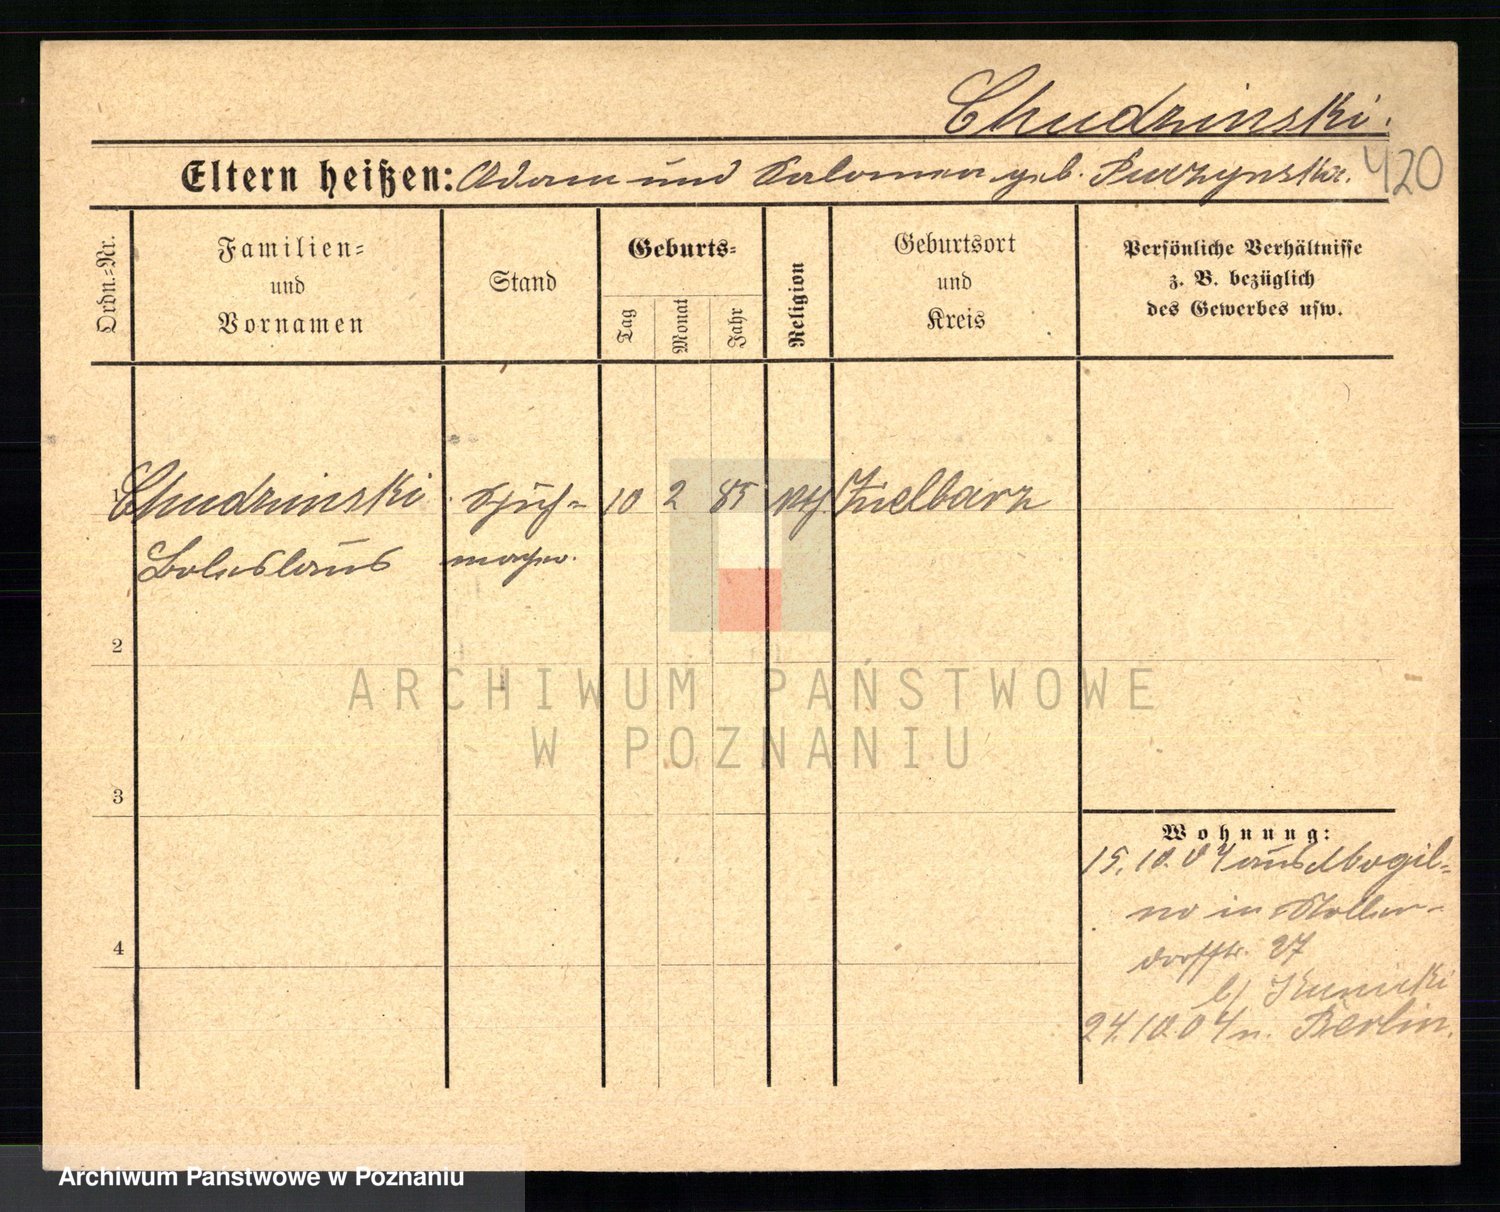 Chudzinski.
Eltern heißen: Adam und Salomea geb. Purzynska.
420
Ordn.-Nr.
Familien-
und
Vornamen
Stand
Geburts-
Tag
Monat
Jahr
Religion
Geburtsort
und
Kreis
Persönliche Verhältnisse
z. B. bezüglich
des Gewerbes usw.
1 Chudzinski Schuh- 10 2 85 kth
Boleslaus macher.
2
3
4
Wohnung:
15.10.04 aus Mogil-
no in Nollen-
dorffstr. 27
b/
24.10.04 n. Berlin.
ARCHIWUM PAŃSTWOWE
W POZNANIU
Archiwum Państwowe w Poznaniu